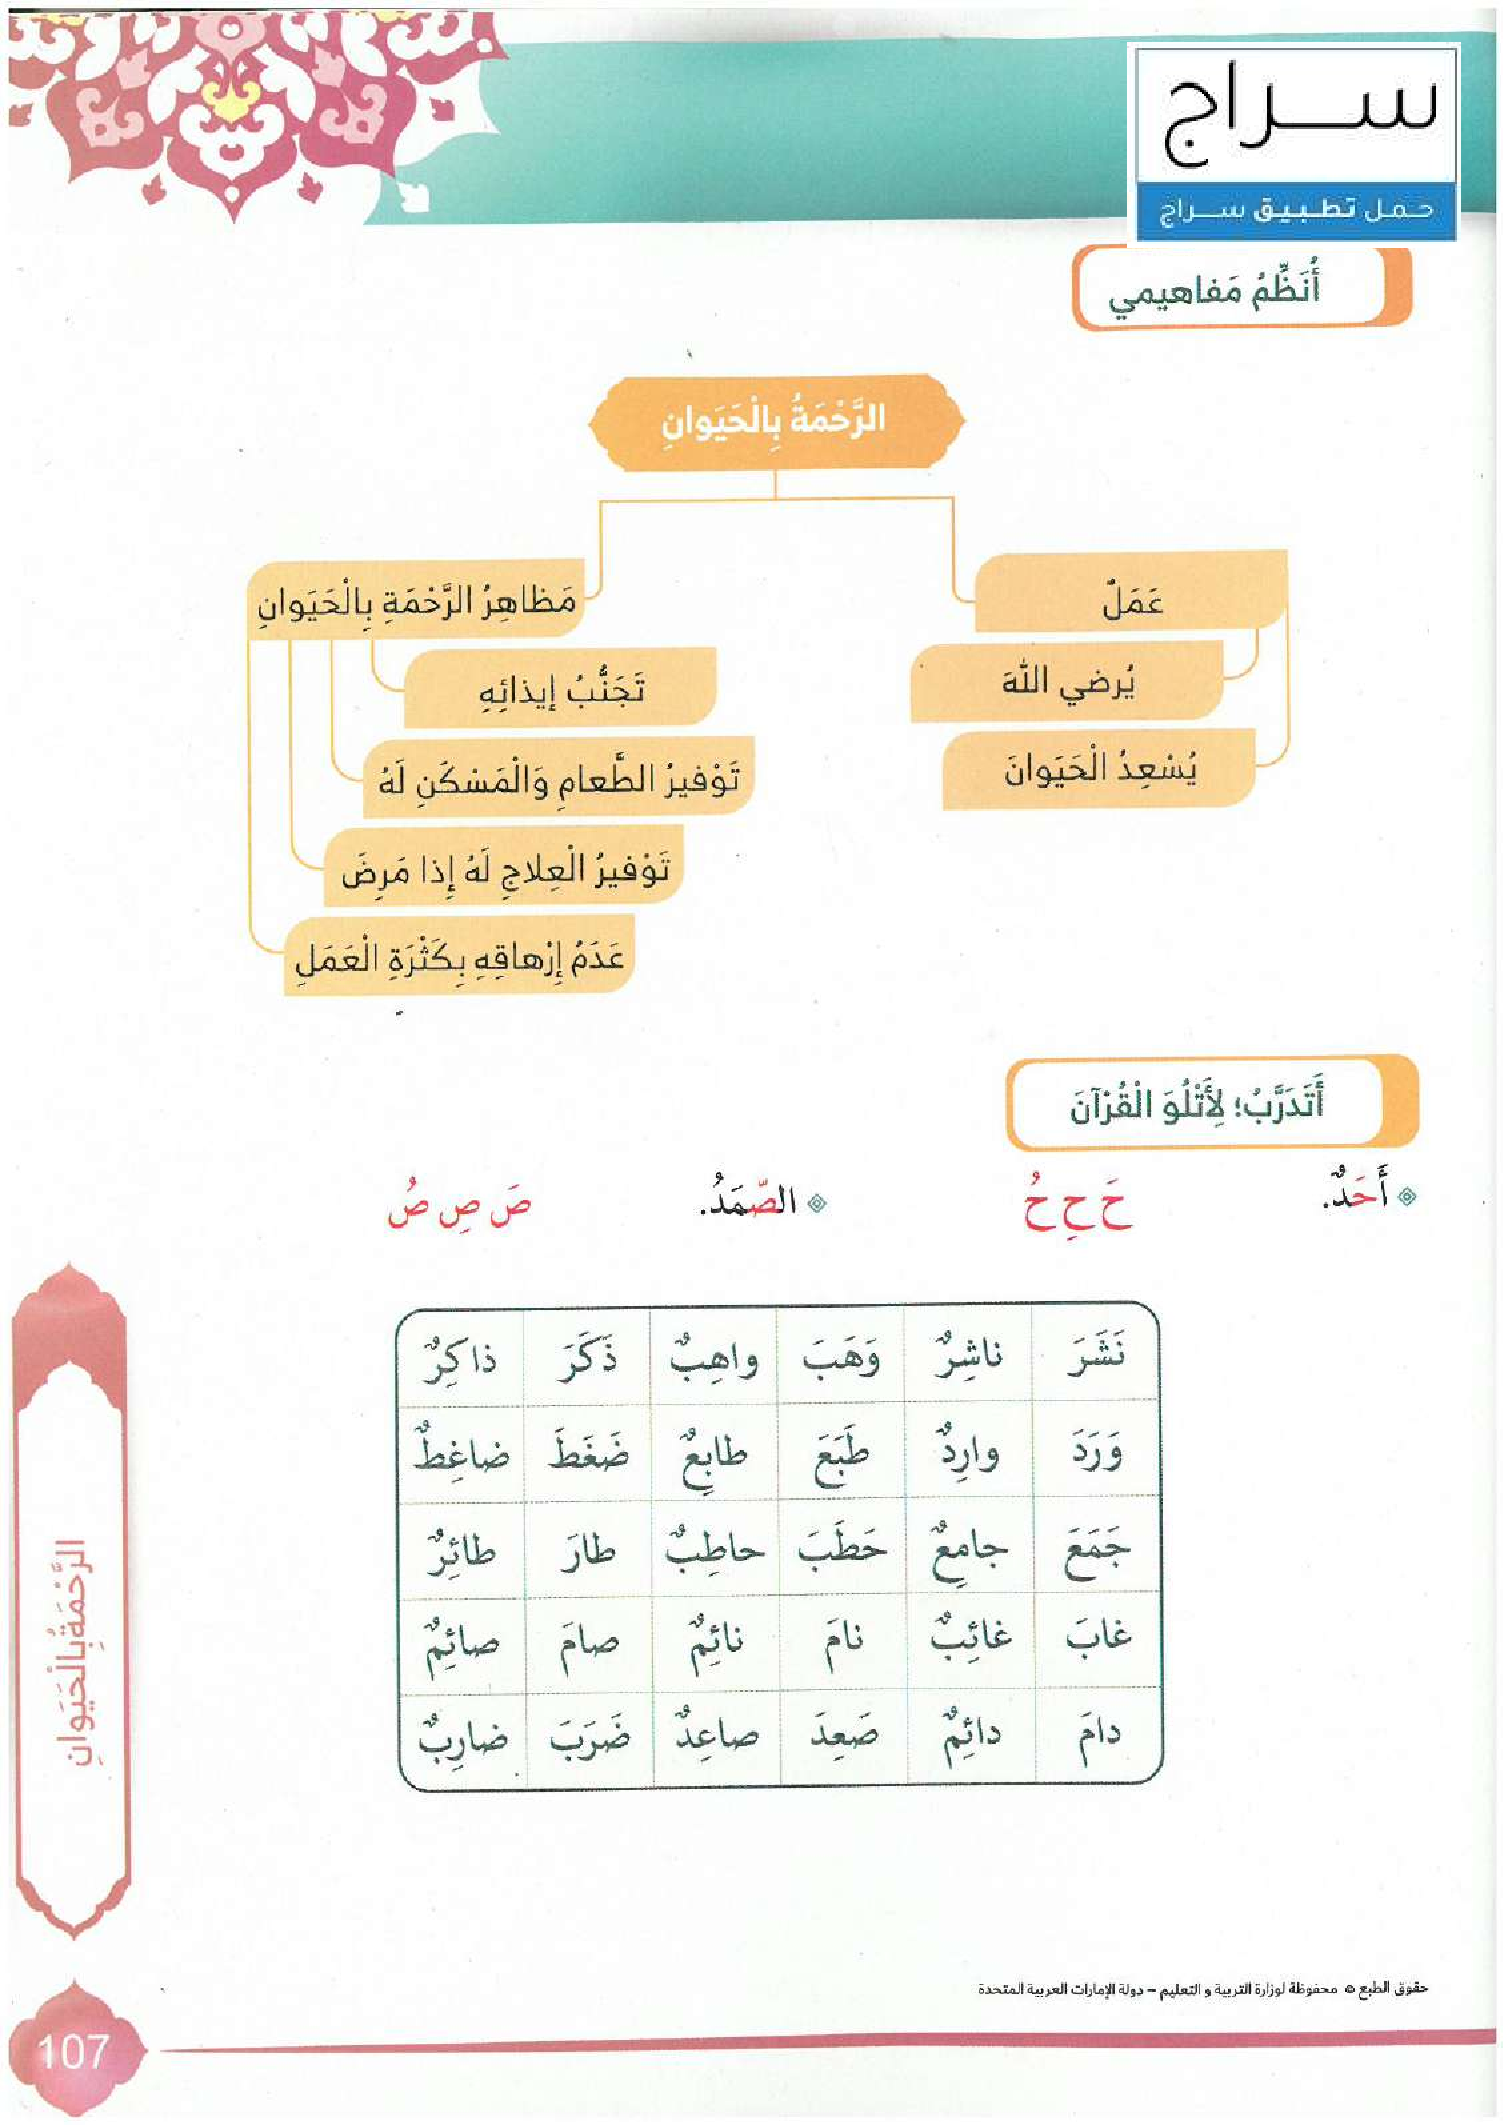 سراج
حمل تطبيق سراج
أُنَظِّمُ مَفاهيمي
الرَّحْمَةُ بِالْحَيَوانِ
عَمَلٌ
يُرضي اللهَ
يُسْعِدُ الْحَيَوانَ
مَظاهِرُ الرَّحْمَةِ بِالْحَيَوانِ
تَجَنُّبُ إيذائِهِ
تَوْفيرُ الطَّعامِ وَالْمَسْكَنِ لَهُ
تَوْفيرُ الْعِلاجِ لَهُ إِذا مَرِضَ
عَدَمُ إِرْهاقِهِ بِكَثْرَةِ الْعَمَلِ
أَتَدَرَّبُ؛ لِأَتْلُوَ الْقُرْآنَ
أَحَدٌ. حَ حِ حُ الصَّمَدُ. صَ صِ صُ
نَشَرَ ناشِرٌ وَهَبَ واهِبٌ ذَكَرَ ذاكِرٌ
وَرَدَ وارِدٌ طَبَعَ طابِعٌ ضَغَطَ ضاغِطٌ
جَمَعَ جامِعٌ حَطَبَ حاطِبٌ طارَ طائِرٌ
غابَ غائِبٌ نامَ نائِمٌ صامَ صائِمٌ
دامَ دائِمٌ صَعِدَ صاعِدٌ ضَرَبَ ضارِبٌ
الرَّحْمَةُ بِالْحَيَوانِ
حقوق الطبع © محفوظة لوزارة التربية و التعليم – دولة الإمارات العربية المتحدة
107